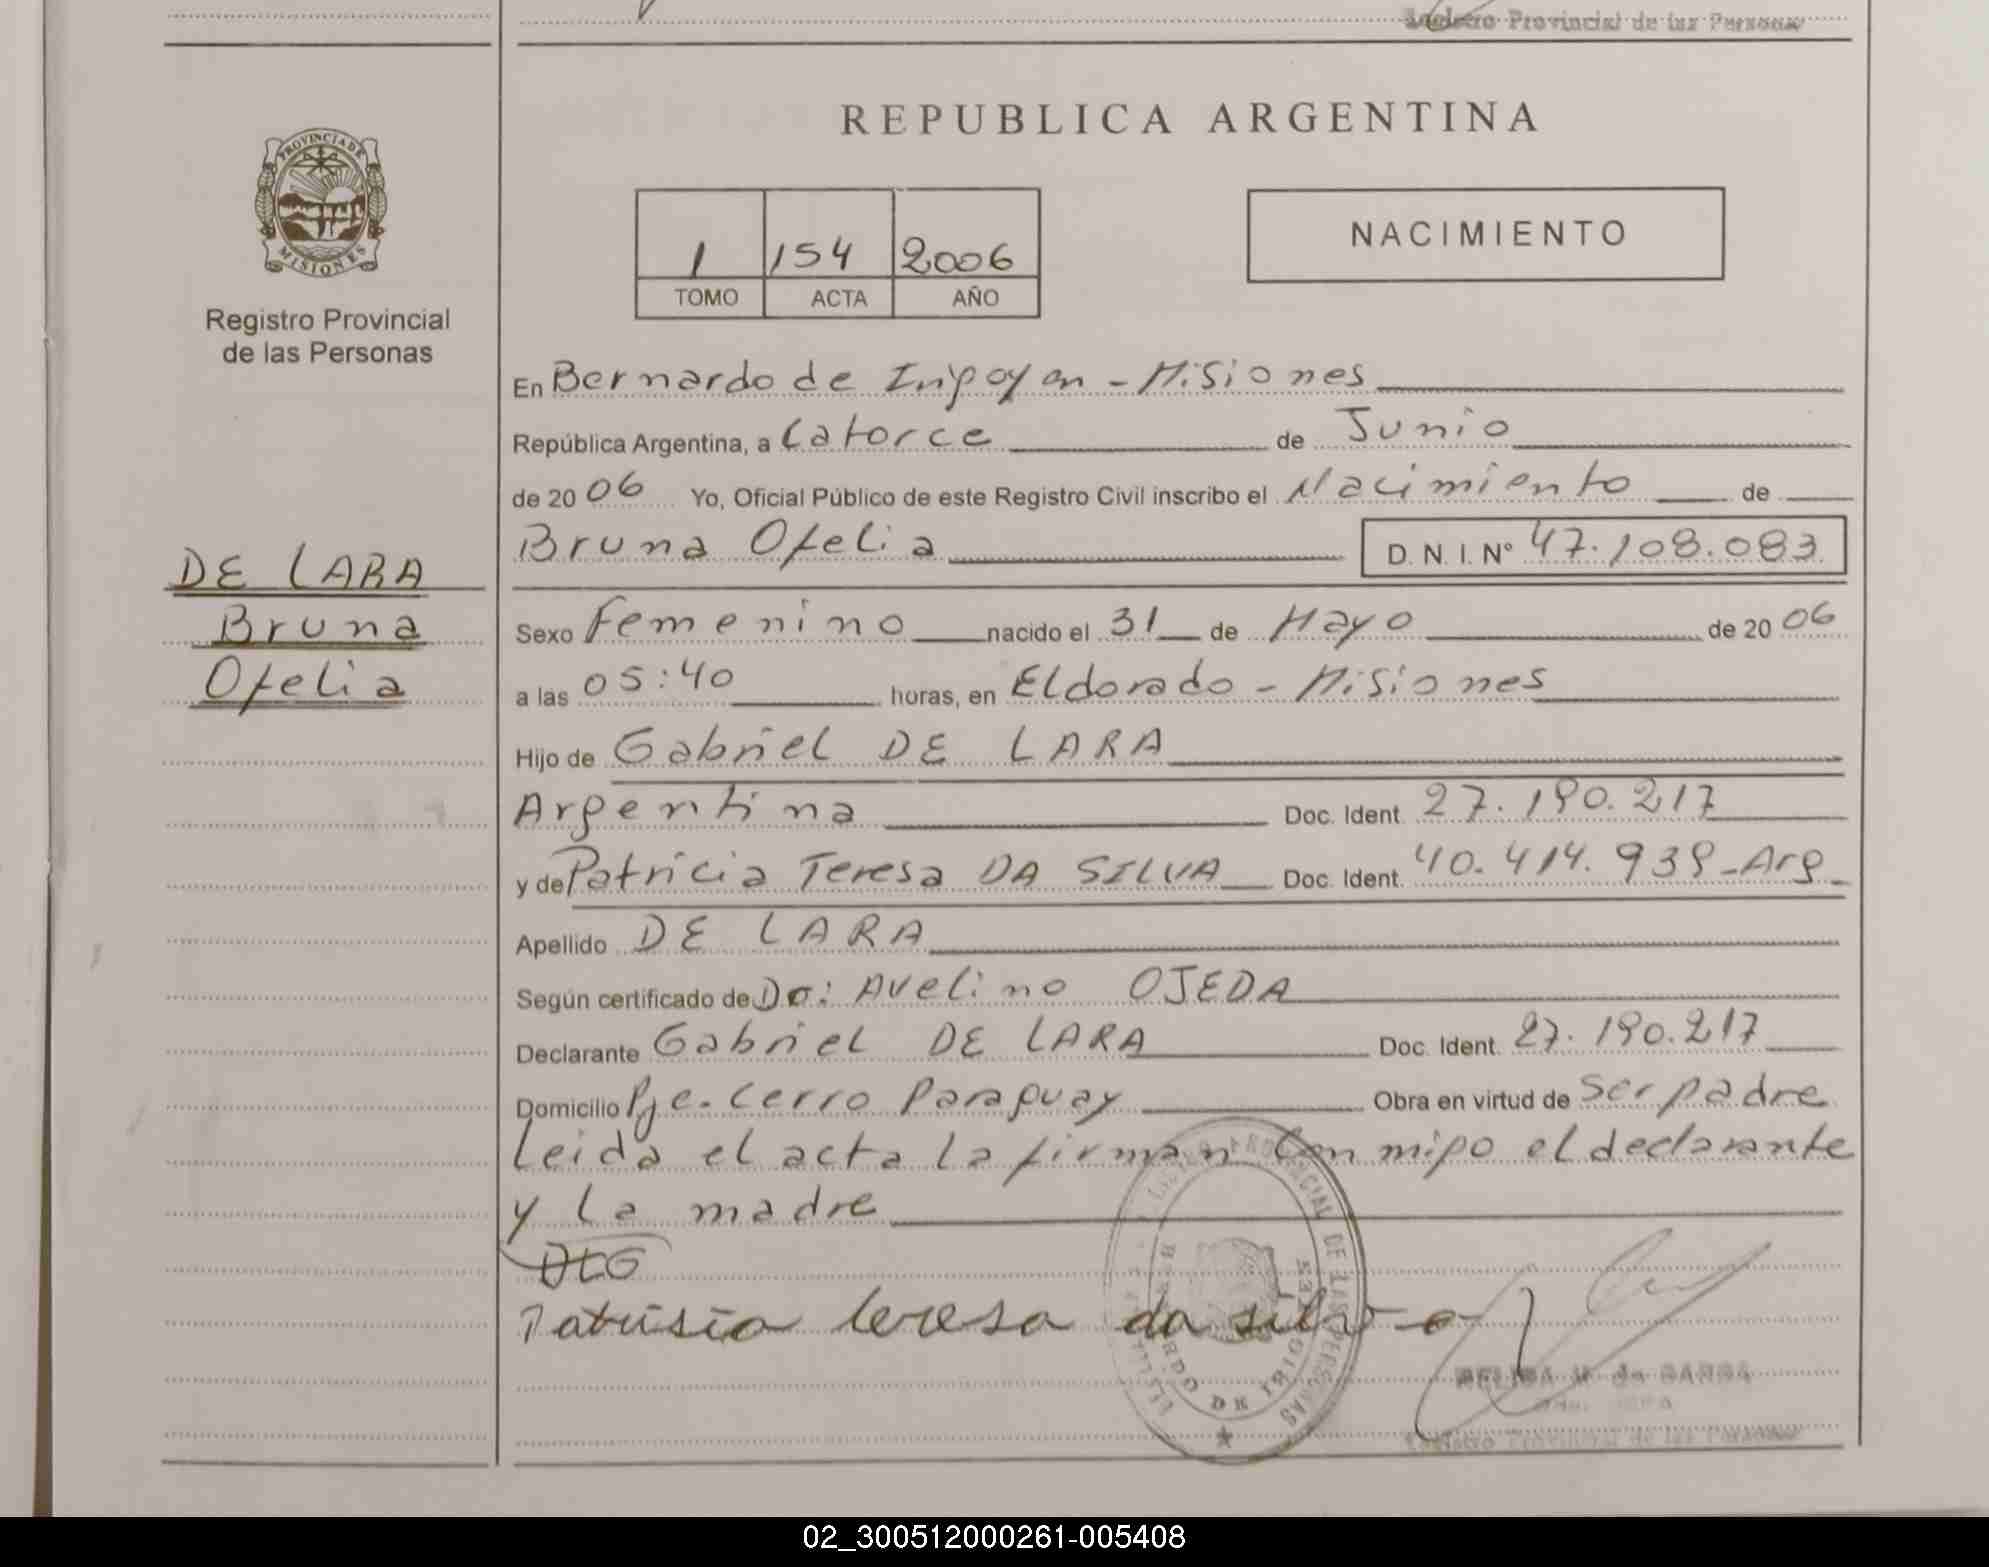 Registro Provincial de las Personas
REPUBLICA ARGENTINA
PROVINCIA DE
MISIONES
Registro Provincial
de las Personas
1 154 2006
TOMO ACTA AÑO
NACIMIENTO
En Bernardo de Irigoyen - Misiones
República Argentina, a Catorce de Junio
de 2006 Yo, Oficial Público de este Registro Civil inscribo el Nacimiento de
Bruna Ofelia D. N. I. Nº 47.108.083
DE LARA
Bruna
Ofelia
Sexo Femenino nacido el 31 de Mayo de 2006
a las 05:40 horas, en Eldorado - Misiones
Hijo de Gabriel DE LARA
Argentina Doc. Ident. 27.190.217
y de Patricia Teresa DA SILVA Doc. Ident. 40.414.939 - Arg
Apellido DE LARA
Según certificado de Dr: Avelino OJEDA
Declarante Gabriel DE LARA Doc. Ident. 27.190.217
Domicilio Pje. Cerro Paraguay Obra en virtud de Ser padre
Leida el acta la firman Con migo el declarante
y la madre
DLG
Patrisia teresa da silva
REGISTRO PROVINCIAL DE LAS PERSONAS
Registro Provincial de las Personas
02_300512000261-005408